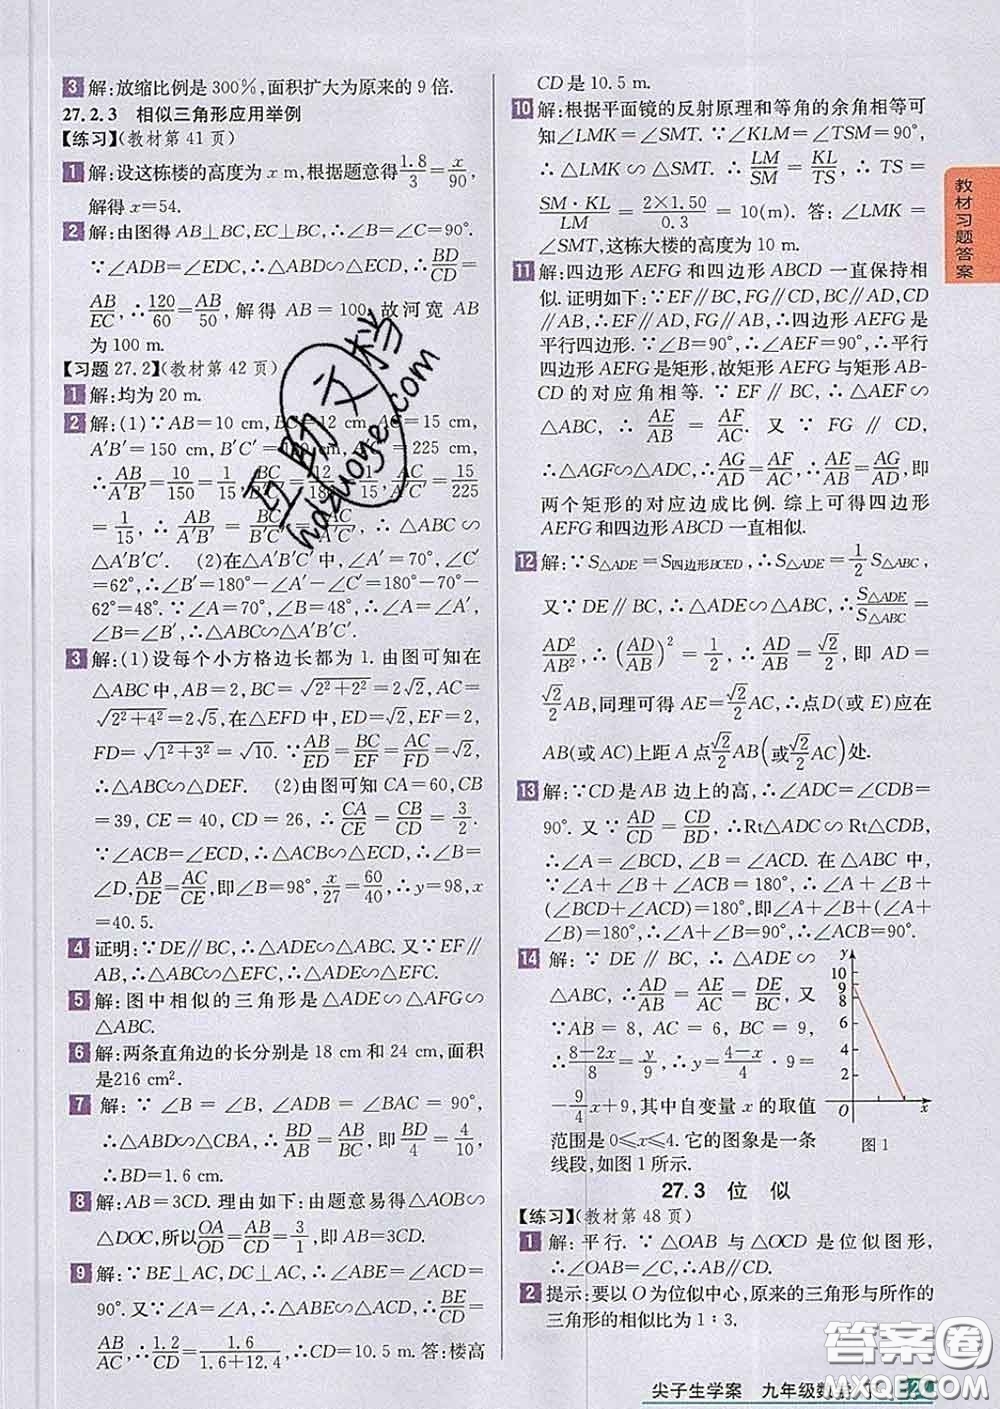 3 解:放缩比例是300%,面积扩大为原来的9倍.
27.2.3 相似三角形应用举例
【练习】(教材第41页)
1 解:设这栋楼的高度为x m,根据题意得1.8/3=x/90,
解得x=54.
2 解:由图得AB⊥BC,EC⊥BC,∴∠B=∠C=90°.
∵∠ADB=∠EDC,∴△ABD∽△ECD,∴BD/CD=
AB/EC,∴120/60=AB/50,解得AB=100,故河宽AB
为100 m.
【习题27.2】(教材第42页)
1 解:均为20 m.
2 解:(1)∵AB=10 cm,BC=12 cm,AC=15 cm,
A′B′=150 cm,B′C′=180 cm,A′C′=225 cm,
∴AB/A′B′=10/150=1/15,BC/B′C′=12/180=1/15,AC/A′C′=15/225
=1/15,∴AB/A′B′=BC/B′C′=AC/A′C′,∴△ABC∽
△A′B′C′. (2)在△A′B′C′中,∠A′=70°,∠C′
=62°,∴∠B′=180°-∠A′-∠C′=180°-70°-
62°=48°.∵∠A=70°,∠B=48°,∴∠A=∠A′,
∠B=∠B′,∴△ABC∽△A′B′C′.
3 解:(1)设每个小方格边长都为1.由图可知在
△ABC中,AB=2,BC=√(2²+2²)=2√2,AC=
√(2²+4²)=2√5,在△EFD中,ED=√2,EF=2,
FD=√(1²+3²)=√10.∵AB/ED=BC/EF=AC/FD=√2,
∴△ABC∽△DEF. (2)由图可知CA=60,CB
=39,CE=40,CD=26,∴CA/CE=CB/CD=3/2.
∵∠ACB=∠ECD,∴△ACB∽△ECD,∴∠B=
∠D,AB/DE=AC/CE,即∠B=98°,x/27=60/40,∴y=98,x
=40.5.
4 证明:∵DE∥BC,∴△ADE∽△ABC.又∵EF∥
AB,∴△ABC∽△EFC,∴△ADE∽△EFC.
5 解:图中相似的三角形是△ADE∽△AFG∽
△ABC.
6 解:两条直角边的长分别是18 cm和24 cm,面积
是216 cm².
7 解:∵∠B=∠B,∠ADB=∠BAC=90°,
∴△ABD∽△CBA,∴BD/AB=AB/BC,即BD/4=4/10,
∴BD=1.6 cm.
8 解:AB=3CD.理由如下:由题意易得△AOB∽
△DOC,所以OA/OD=AB/CD=3/1,即AB=3CD.
9 解:∵BE⊥AC,DC⊥AC,∴∠ABE=∠ACD=
90°.又∵∠A=∠A,∴△ABE∽△ACD,∴BE/CD=
AB/AC,∴1.2/CD=1.6/(1.6+12.4),∴CD=10.5 m.答:楼高
CD是10.5 m.
10 解:根据平面镜的反射原理和等角的余角相等可
知∠LMK=∠SMT.∵∠KLM=∠TSM=90°,
∴△LMK∽△SMT.∴LM/SM=KL/TS.∴TS=
SM·KL/LM=2×1.50/0.3=10(m).答:∠LMK=
∠SMT,这栋大楼的高度为10 m.
11 解:四边形AEFG和四边形ABCD一直保持相
似.证明如下:∵EF∥BC,FG∥CD,BC∥AD,CD
∥AB,∴EF∥AD,FG∥AB,∴四边形AEFG是
平行四边形.∵∠B=90°,∴∠AEF=90°,∴平行
四边形AEFG是矩形,故矩形AEFG与矩形AB-
CD的对应角相等.∵EF∥BC,∴△AEF∽
△ABC,∴AE/AB=AF/AC.又∵FG∥CD,
∴△AGF∽△ADC,∴AG/AD=AF/AC,∴AE/AB=AG/AD,即
两个矩形的对应边成比例.综上可得四边形
AEFG和四边形ABCD一直相似.
12 解:∵S△ADE=S四边形BCED,∴S△ADE=1/2 S△ABC,
又∵DE∥BC,∴△ADE∽△ABC,∴S△ADE/S△ABC=
AD²/AB²,∴(AD/AB)²=1/2,∴AD/AB=√2/2,即AD=
√2/2AB,同理可得AE=√2/2AC,∴点D(或E)应在
AB(或AC)上距A点√2/2AB(或√2/2AC)处.
13 解:∵CD是AB边上的高,∴∠ADC=∠CDB=
90°.又∵AD/CD=CD/BD,∴Rt△ADC∽Rt△CDB,
∴∠A=∠BCD,∠B=∠ACD.在△ABC中,
∵∠A+∠B+∠ACB=180°,∴∠A+∠B+
(∠BCD+∠ACD)=180°,即∠A+∠B+(∠A+
∠B)=180°,∴∠A+∠B=90°,∴∠ACB=90°.
14 解:∵DE∥BC,∴△ADE∽
△ABC,∴AD/AB=AE/AC=DE/BC,又
∵AB=8,AC=6,BC=9,
∴(8-2x)/8=y/9,∴y=(4-x)/4·9=
-9/4x+9,其中自变量x的取值
范围是0≤x≤4.它的图象是一条
线段,如图1所示.
y
10
9
8
6
4
2
O
x
图1
27.3 位似
【练习】(教材第48页)
1 解:平行.∵△OAB与△OCD是位似图形,
∴∠OAB=∠C,∴AB∥CD.
2 提示:要以O为位似中心,原来的三角形与所作的
三角形的相似比为1∶3.
教材习题答案
互助文档
hdzuoye.com
答案圈
尖子生学案 九年级数学